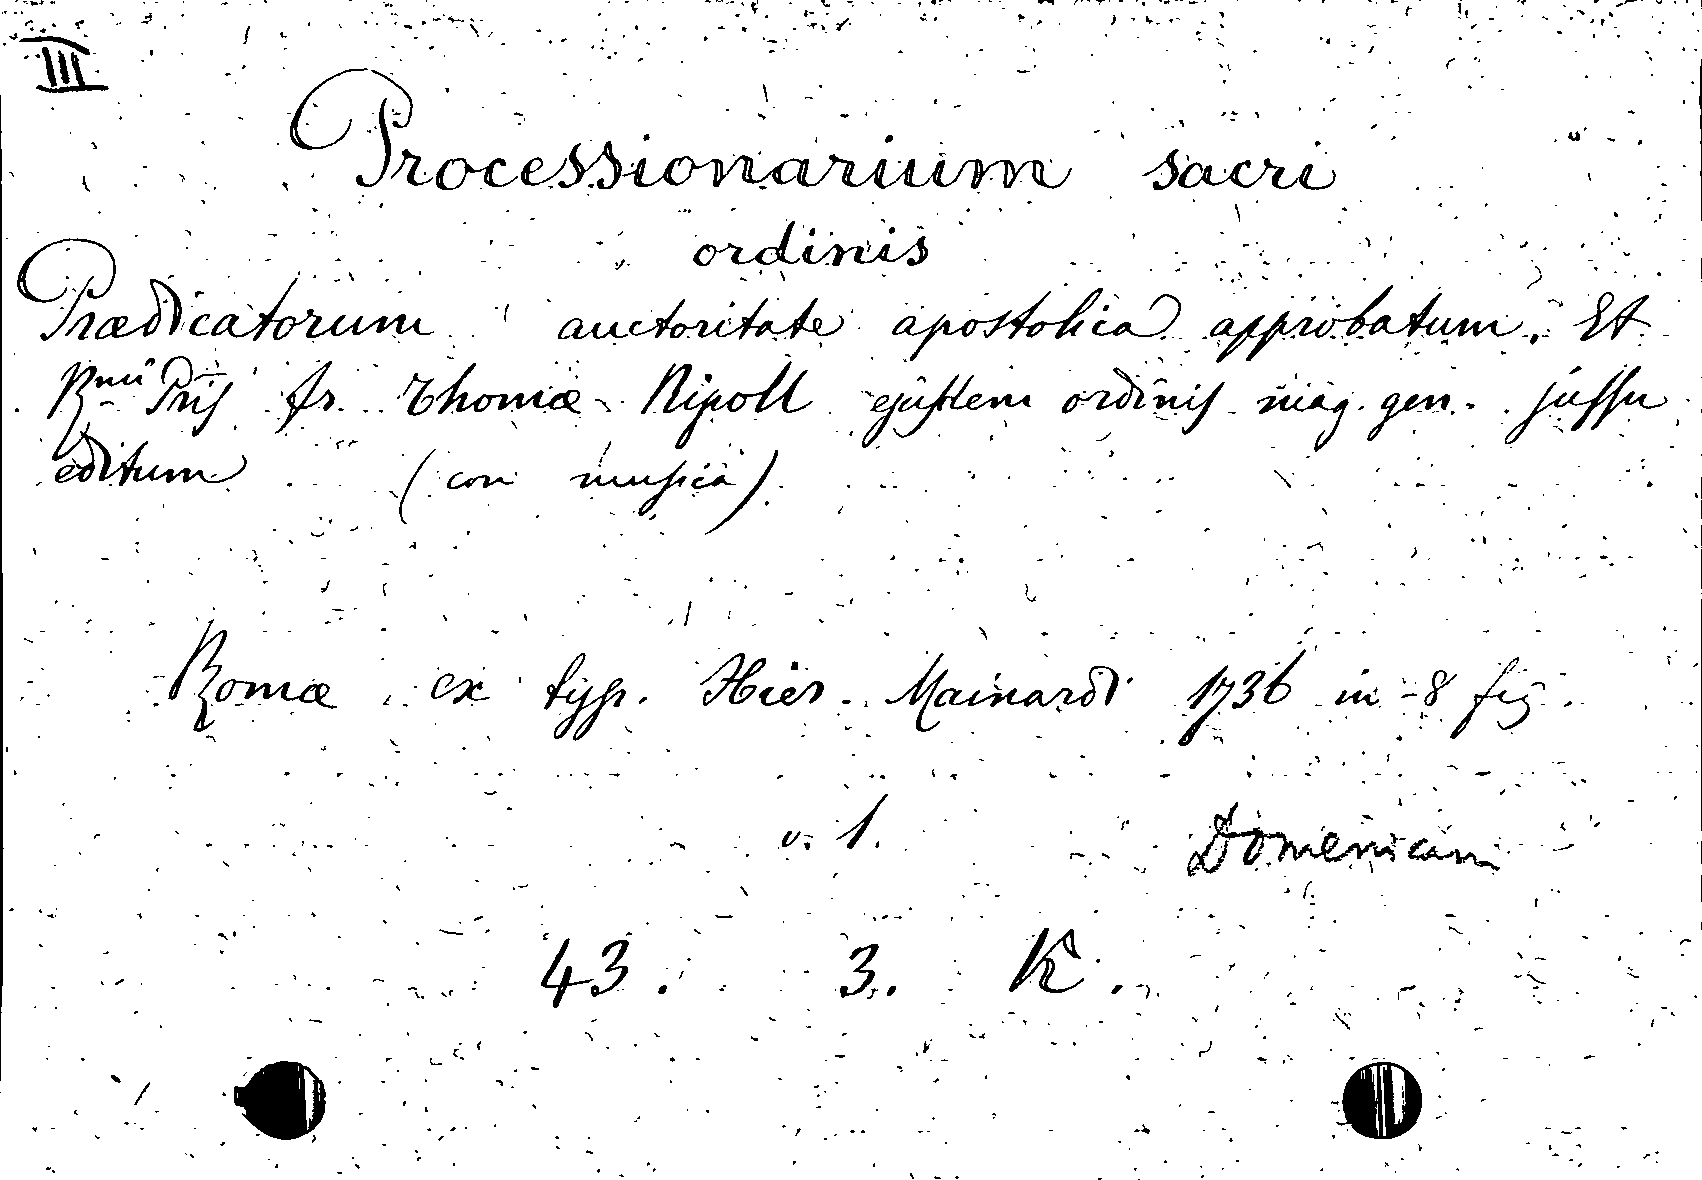 III
Processionarium sacri
ordinis
Prædicatorum auctoritate apostolica approbatum. Et
Rmi Pris fr. Thomæ Ripoll ejusdem ordinis mag. gen. jussu
editum (con musica)
Romæ ex typ. Hier. Mainardi 1736 in-8 fig.
v. 1. Domenicani
43. 3. K.